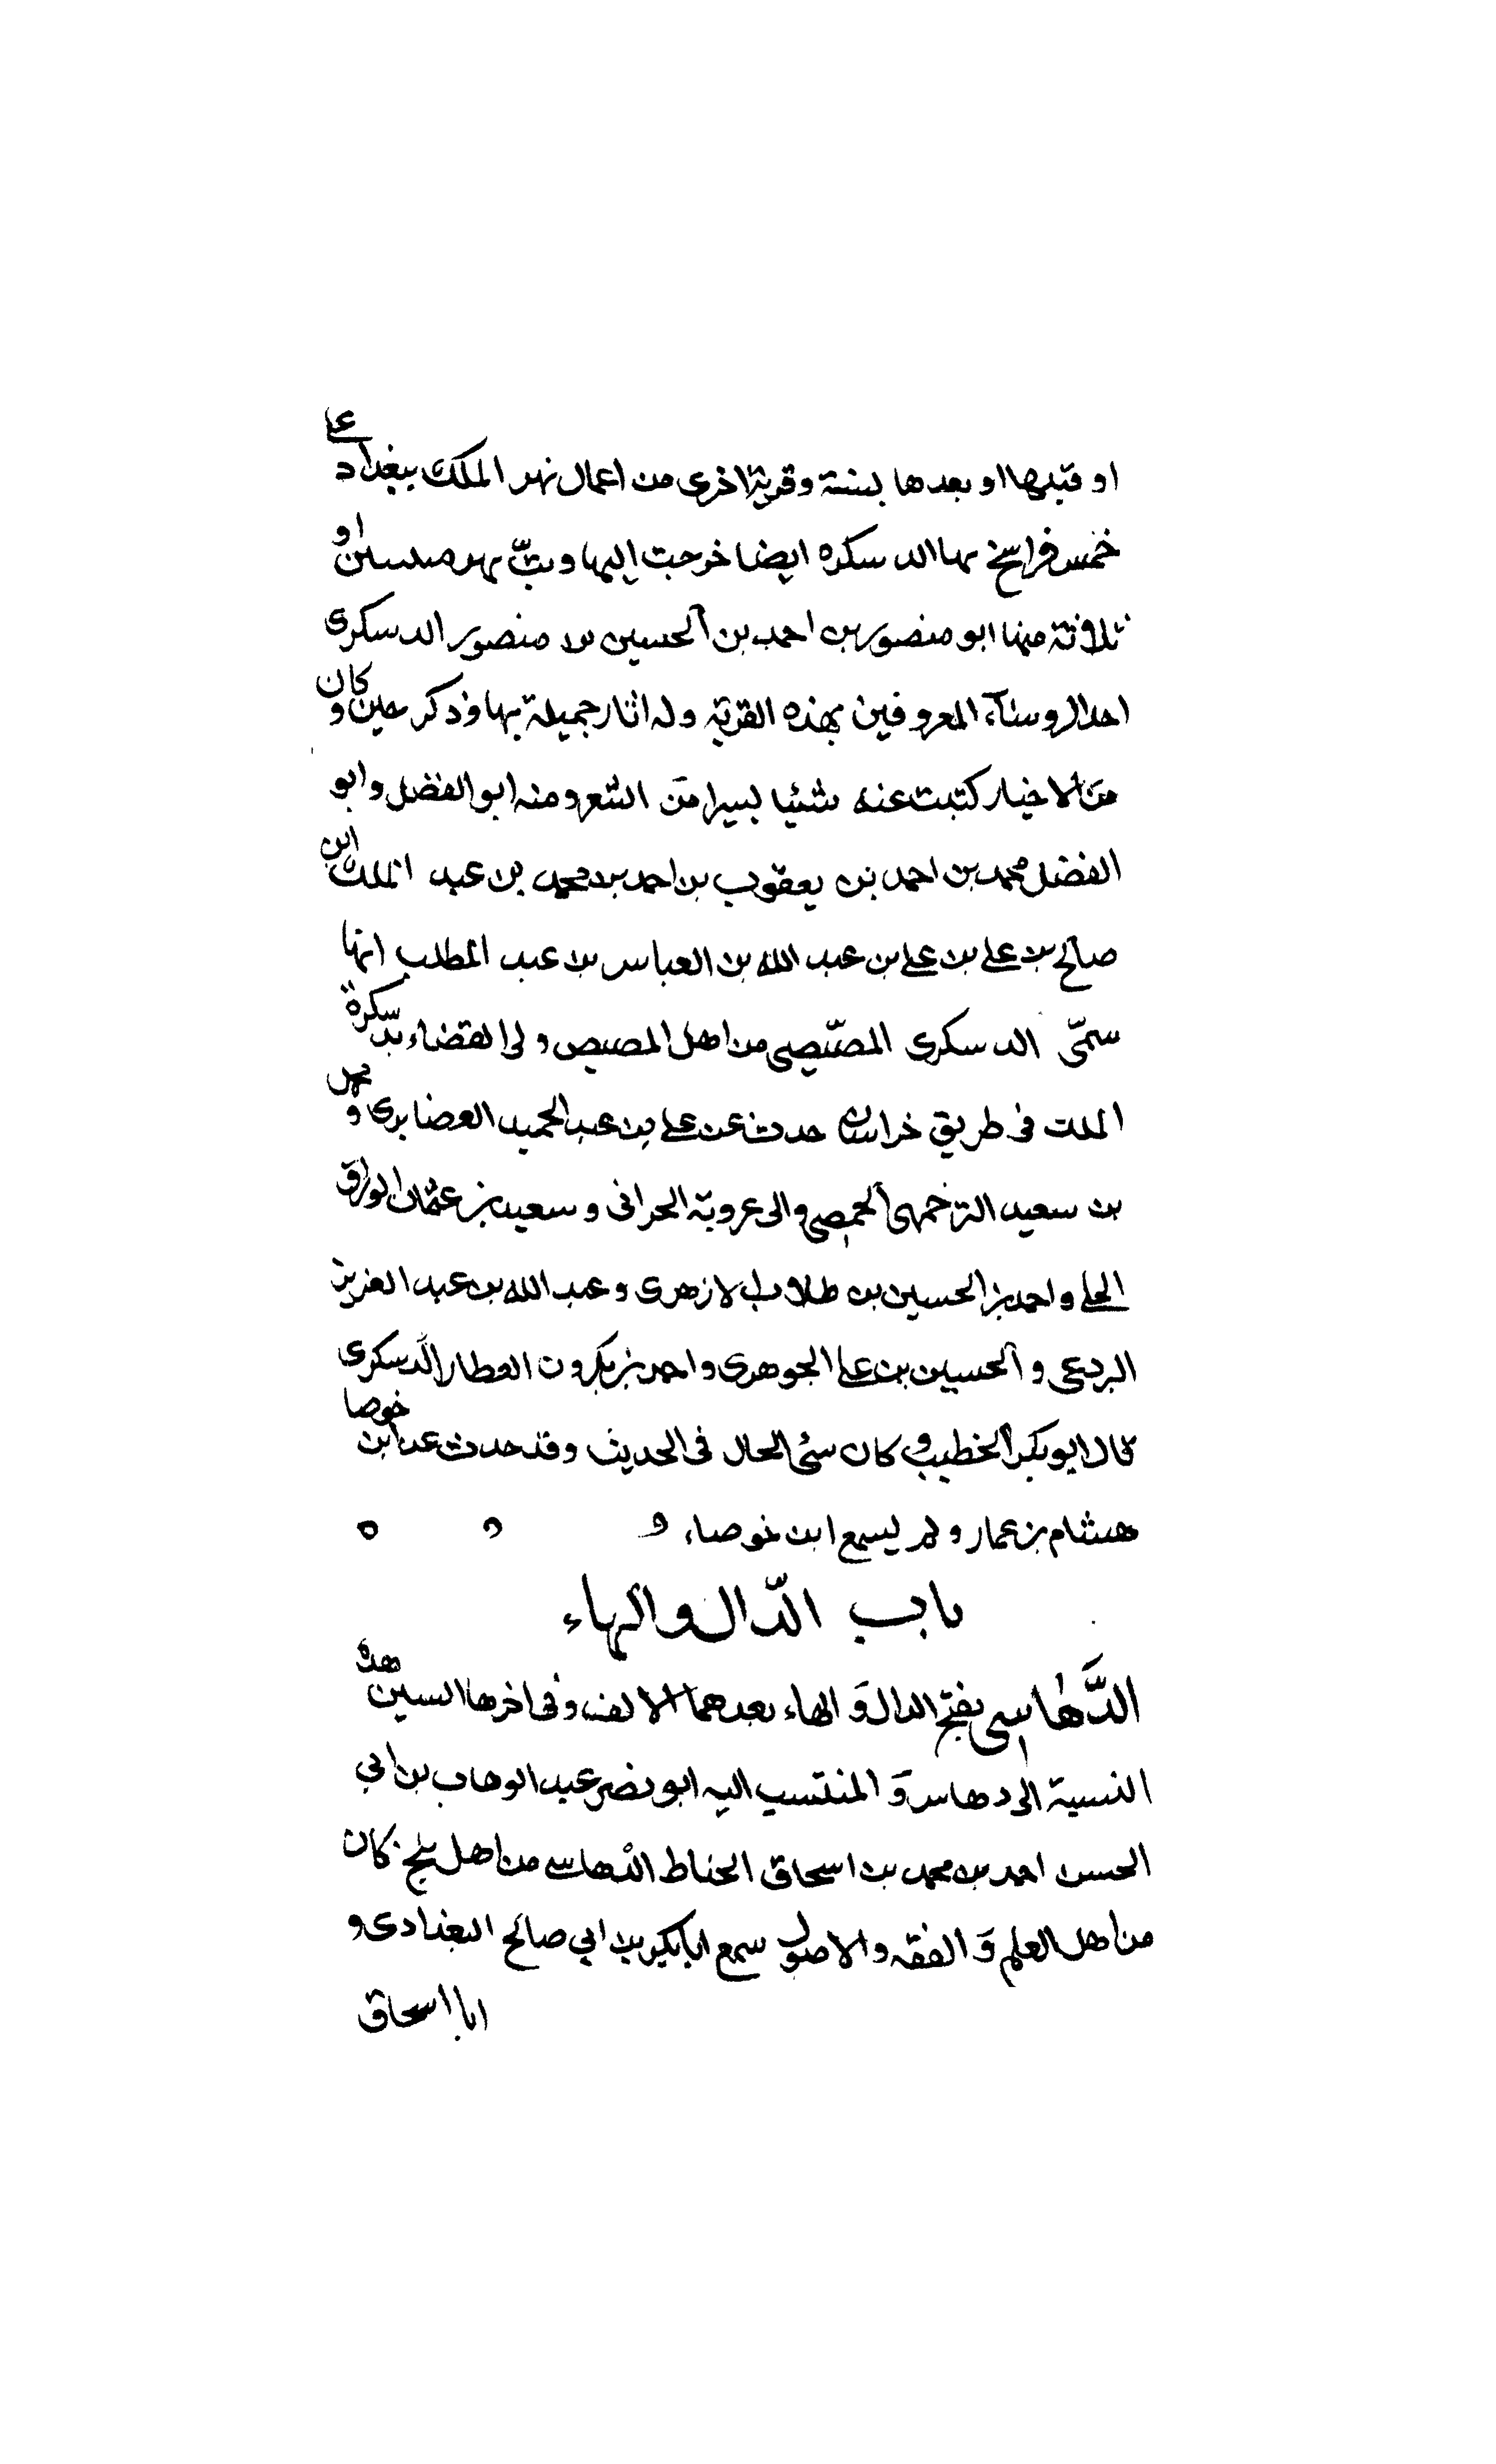 او قبلها او بعدها بسنة وقرية اخرى من اعمال نهر الملك ببغداد على
خمس فراسخ لها الدسكرة ايضا خرجت اليها وبتّ بهو او
ثلاثة منها ابو منصور بن احمد بن الحسين بن منصور الدسكرى
احد الروسآء المعروفين بهذه القرية وله اثار جميلة بها وذكر حين وكان
من الاخيار كتبت عنه شئيا يسيرا من الشعر ومنه ابو الفضل وابو
الفضل محمد بن احمد بن يعقوب بن احمد بن محمد بن عبد الملك ابن
صالح بن على بن على بن عبد الله بن العباس بن عبد المطلب انها
سمّى الدسكرى المصّيصى من اهل المصيص ولى القضاء بدسكرة
الملك فى طريق خراسان حدث عن على بن عبد الحميد الغضايرى ومحمد
بن سعيد الترخمى الحمصى والى عروبة الحرانى وسعيد بن عثمان الوراق
الحلى واحمد بن الحسين بن طلاب الازهرى وعبد الله بن عبد العزيز
البردعى والحسين بن على الجوهرى واحمد بن بكرون العطار الدسكرى
قال ابو بكر الخطيب وكان سئى الحال فى الحديث وقد حدث عن ابن خوصا
هشام بن عمار ولم يسمع ابن خوصاء ه ه ه
باب الدّال والهاء
الدَّهاسى بفتح الدال وَ الهاء بعدهما الالف وفى اخرها السين هذه
النسبة الى دهاس وَ المنتسب اليه ابو نصر عبد الوهاب بن ابي
الحسن احمد بن محمد بن اسحاق الحناط الدهاسى من اهل بلخ كان
من اهل العلم وَ الفقه والاصول سمع ابا بكر بن ابي صالح البغدادى و
ابا اسحاق